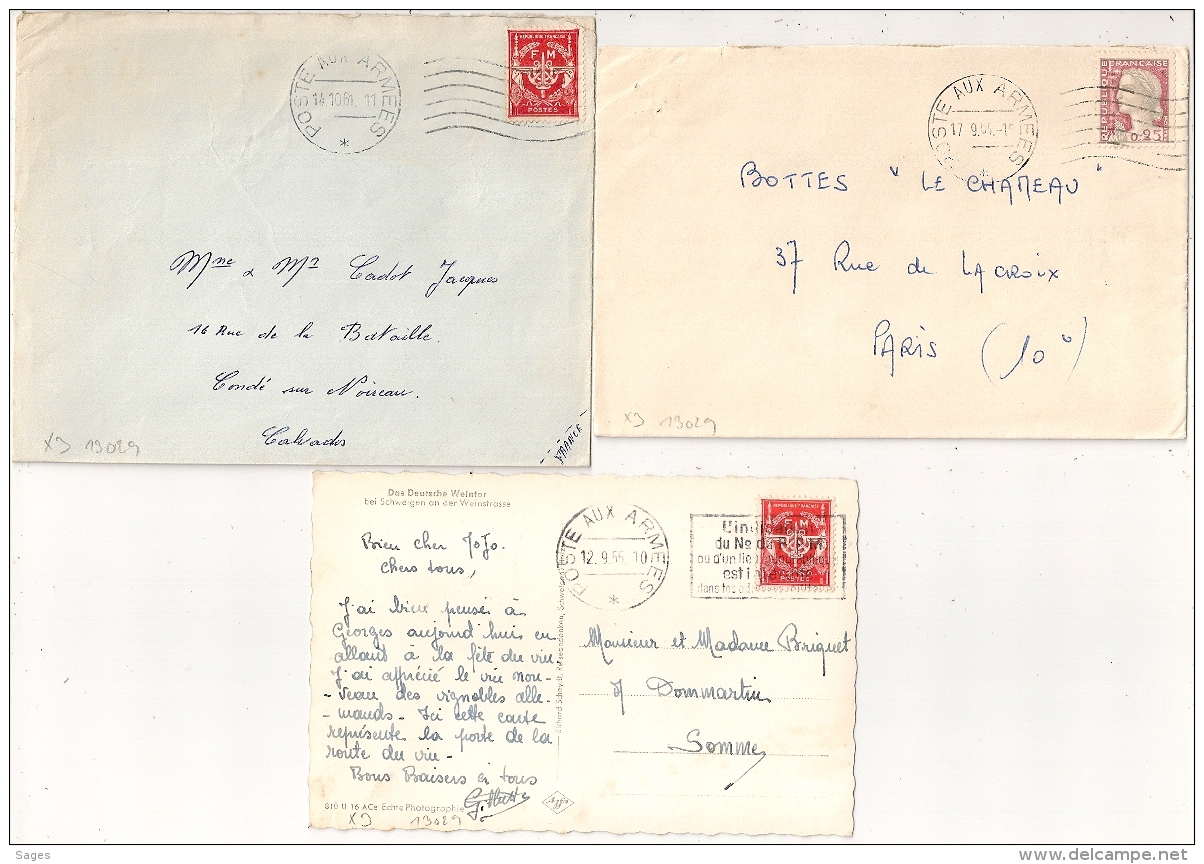 POSTE AUX ARMEES
14 10.61. 11
*
REPUBLIQUE FRANCAISE
F M
POSTES
Mme & Mr Cadot Jacques
16 Rue de la Bataille.
Condé sur Noireau.
Calvados
FRANCE
XJ 13029
POSTE AUX ARMEES
17 9.
*
REPUBLIQUE FRANCAISE
0,25
BOTTES " LE CHAMEAU "
37 Rue de LACROIX
PARIS (10e)
XJ 13029
Das Deutsche Weintor
bei Schweigen an der Weinstrasse
Bien cher JoJo.
Chers tous,
J'ai bien pensé à
Georges aujourd'hui en
allant à la fête du vin
J'ai apprécié le vin nou-
-veau des vignobles alle-
-mands - Ici cette carte
représente la porte de la
route du vin -
Bons Baisers à tous
810 U 16 ACe Echte Photographie
XJ 13029
Agfa
POSTE AUX ARMEES
12. 9.55 10
*
L'indi
du No d
ou d'un
est i
dans
REPUBLIQUE FRANCAISE
F M
POSTES
Monsieur et Madame Briquet
à Dommartin
Somme
Sages
delcampe.net